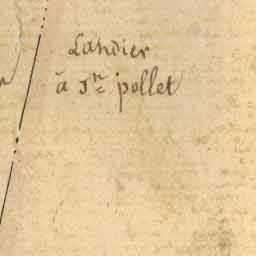 Landier
à Jn pollet